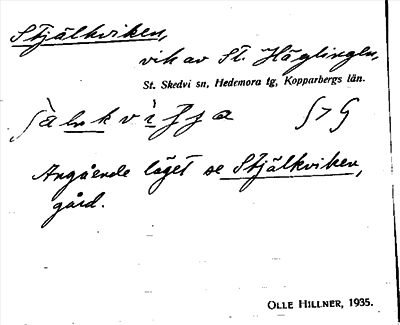 Stjälkviken,
vik av St. Häglingen,
St. Skedvi sn, Hedemora tg, Kopparbergs län.
Angående läget se Stjälkviken,
gård.
OLLE HILLNER, 1935.